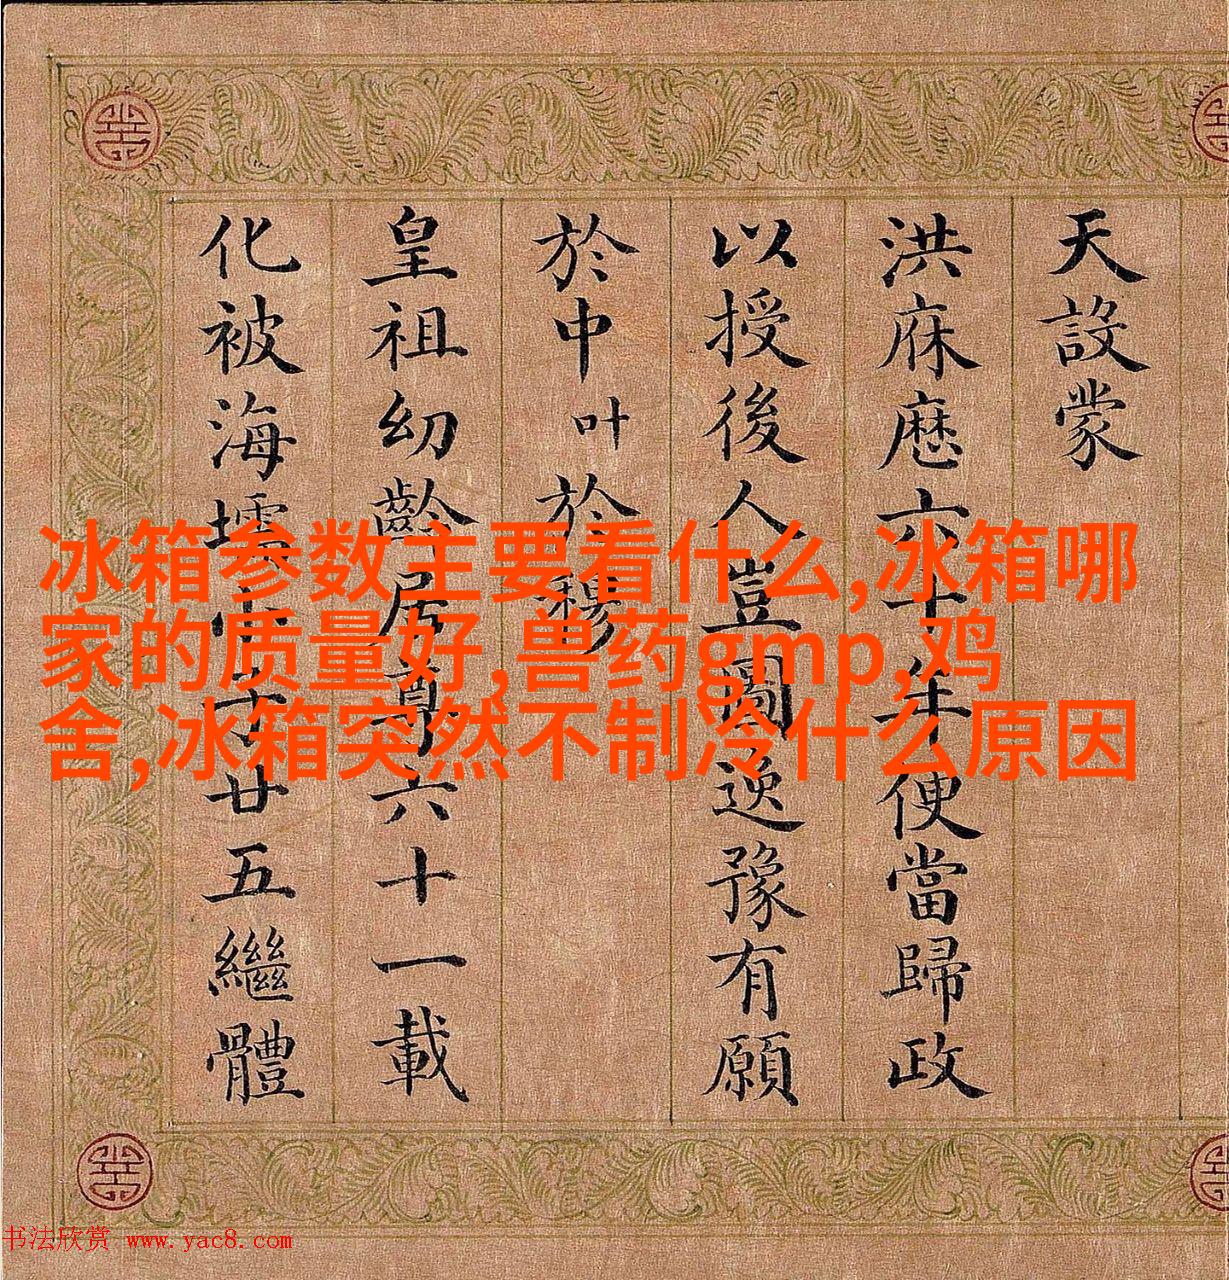 天設蒙
洪庥歷六十年便當歸政
以授後人豈圖逸豫有願
於中叶於穆
皇祖幼齡居尊六十一載
化被海壖小子廿五繼體
冰箱参数主要看什么,冰箱哪
家的质量好,兽药gmp,鸡
舍,冰箱突然不制冷什么原因
书法欣赏 www.yac8.com